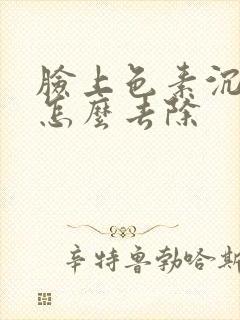 臉上色素沉
怎麼去除
辛特魯勃哈斯